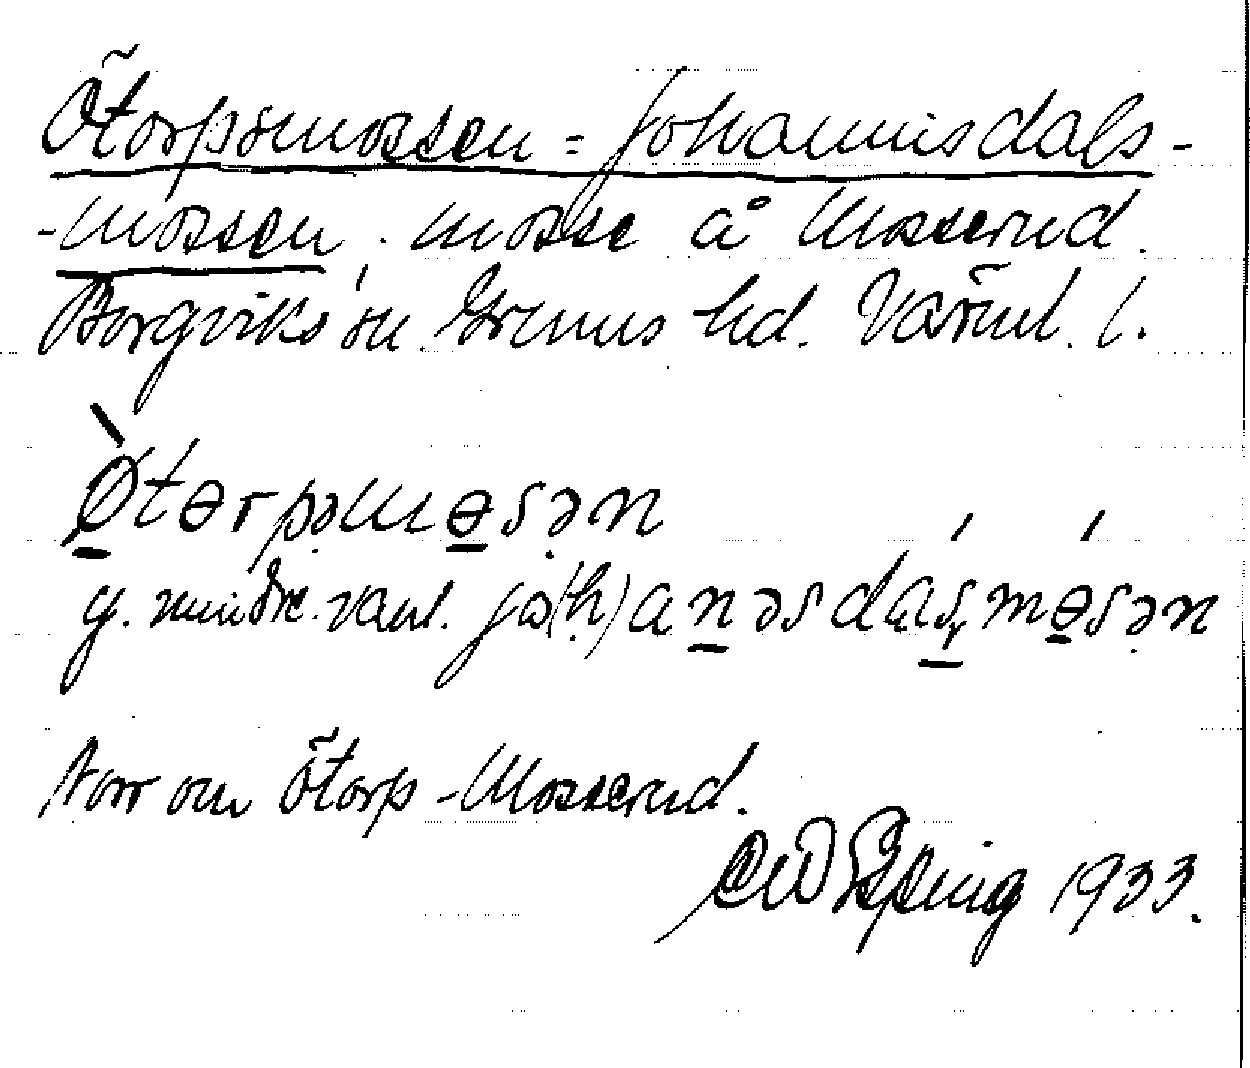 Ötorpsmossen = Johannisdals-
-mossen. mosse å Mosserud.
Borgviks sn. Grums hd. Värml. l.
Ǿtɵrpəmɵsən
y. mindre vanl. jo(h)anəsdaṣmɵsən
Norr om Ötorp-Mosserud.
1933.